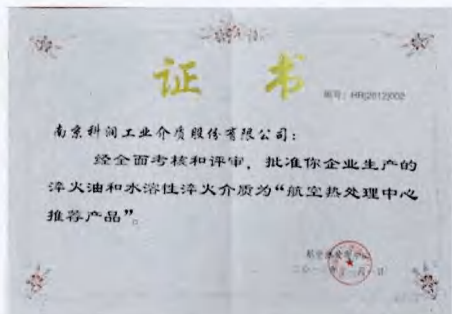 证 书
编号：HR(2012)002
南京科润工业介质股份有限公司：
经全面考核和评审，批准你企业生产的
淬火油和水溶性淬火介质为“航空热处理中心
推荐产品”。